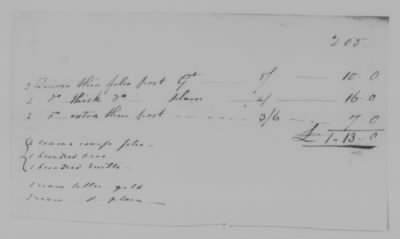 205.
2 Quires thin folio post Gt — 5/ — 10. 0
2 do thick do — plain — 4/ — 16. 0
2 do extra thin post — 3/6 — 7 0
£ 1-13-0
folio —
1 hundred
1 hundred quills —
1 ream letter gilt
1 ream do plain —